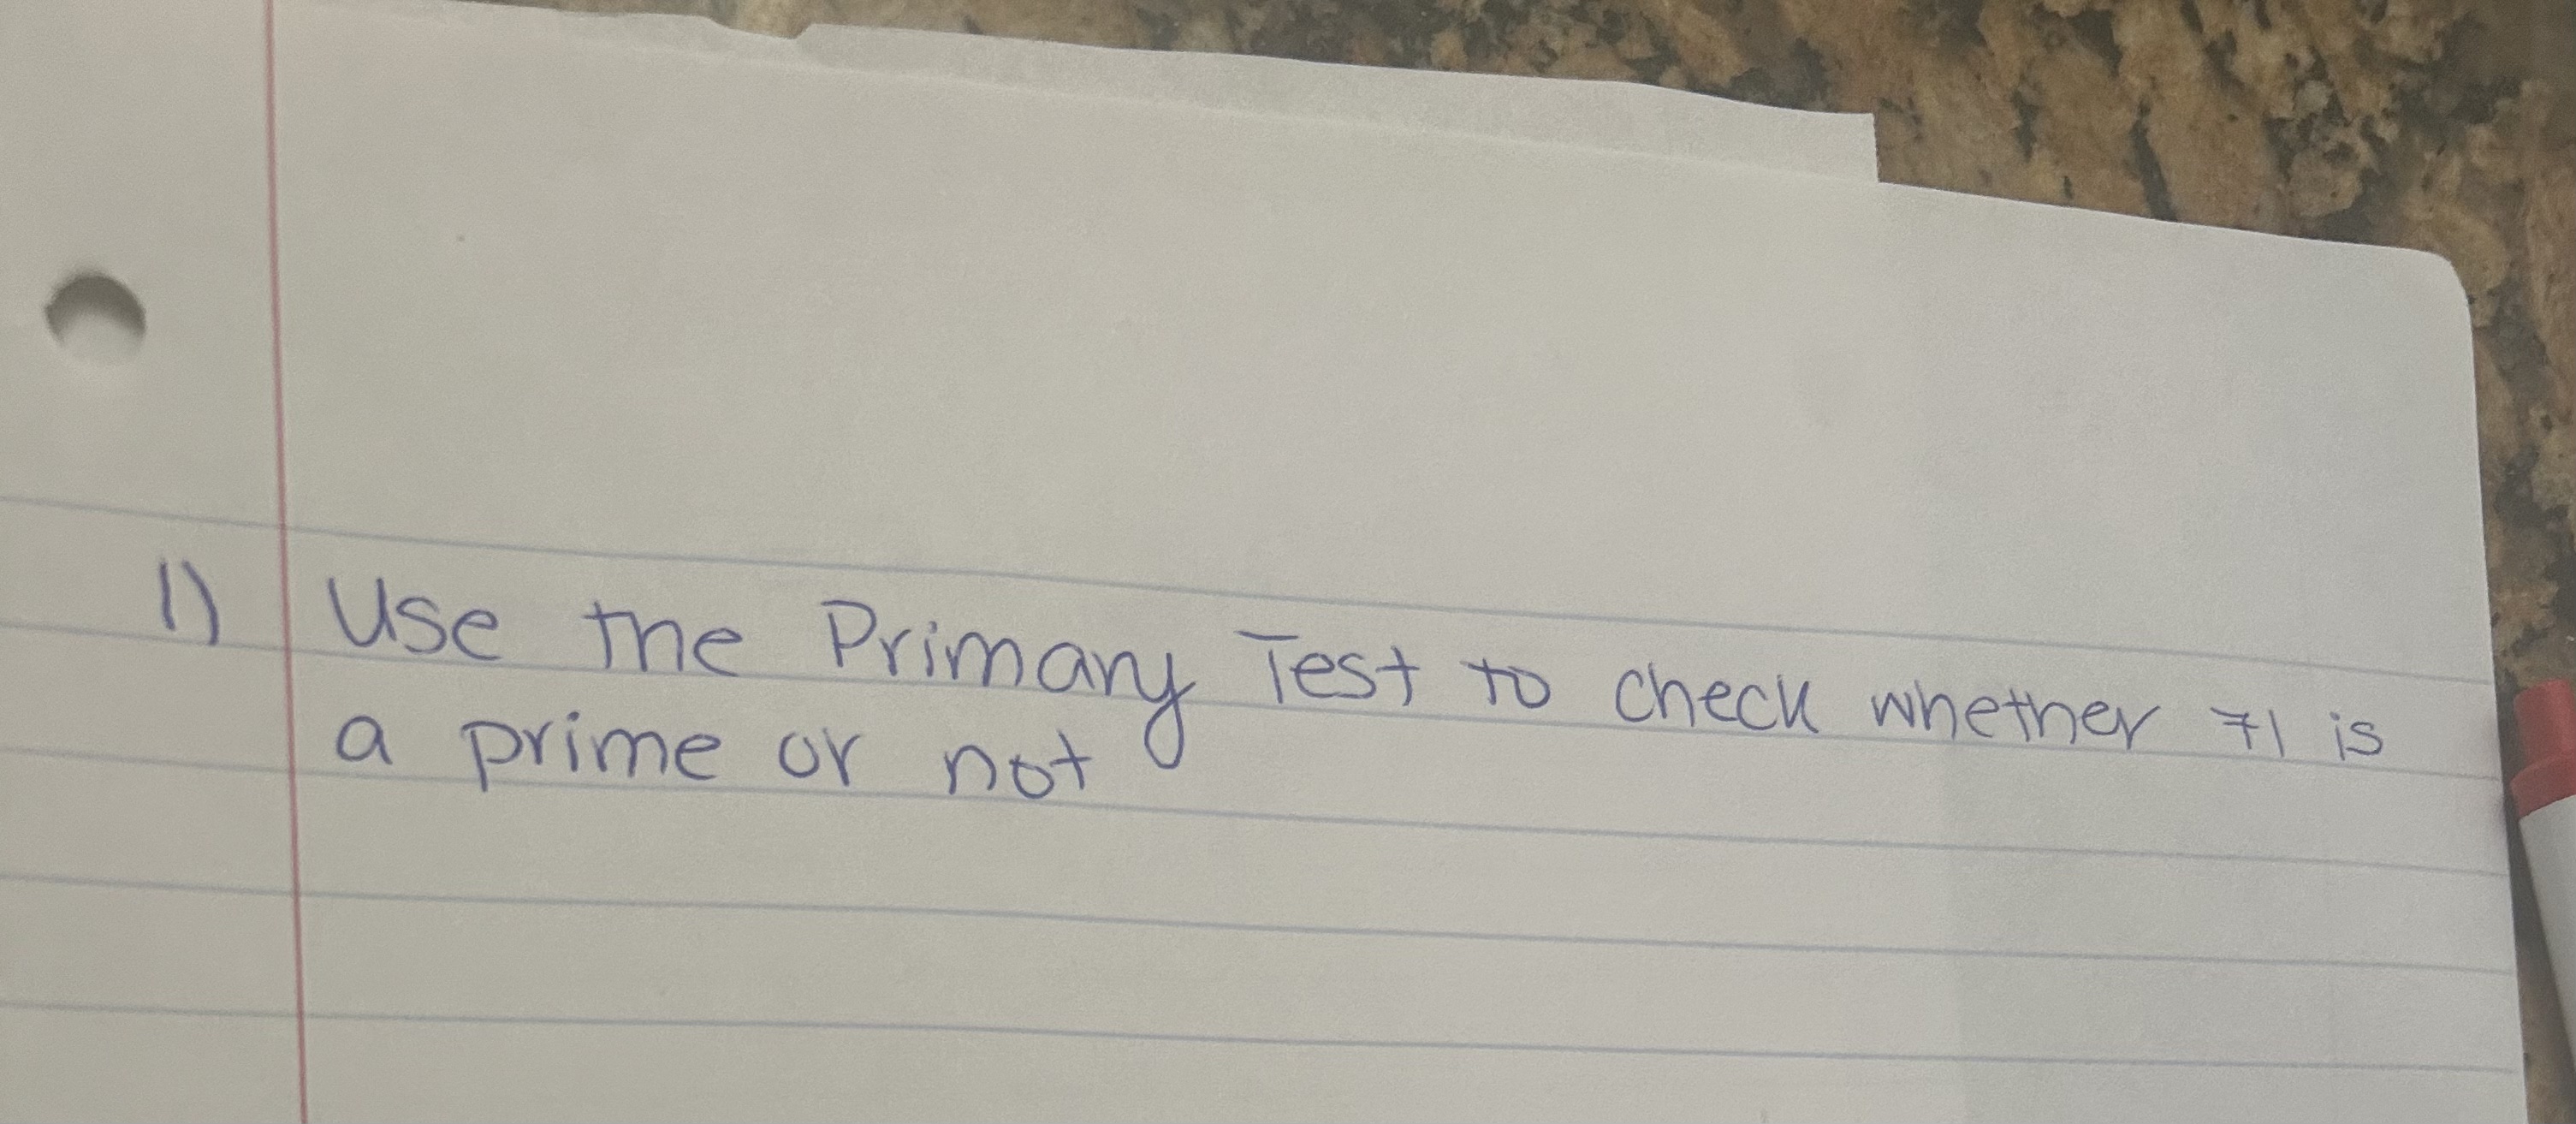 1) Use the Primary Test to check whether 71 is
a prime or not